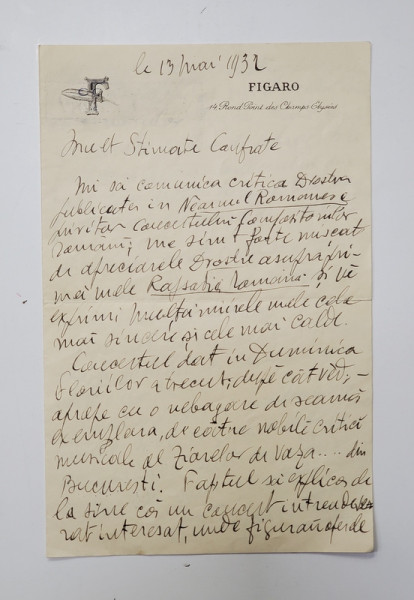 le 13 mai 1932
F
FIGARO
14 Rond Point des Champs Elysées
Mult Stimate Confrate
Mi sà comunica critica Dvostra
publicata in Neamul Romanesc
privitor concertului Compozitorilor
romani; me simt forte miscat
de apreciarele Dvostre asupra pri-
mai mele Rapsodie Romănă și vĕ
exprimi multămirele mele cele
mai sincere și cele mai calde.
Concertul dat in Duminica
Floriilor a trecut, dupĕ cât vĕd, -
aprope cu o nebagare de seamă
exemplara, de către nobile critici
musicale al ziarelor de vaza .... din
Bucuresti. Faptul se explica de
la sine căi un concert intradevĕ-
rat interesat, unde figurau opere de